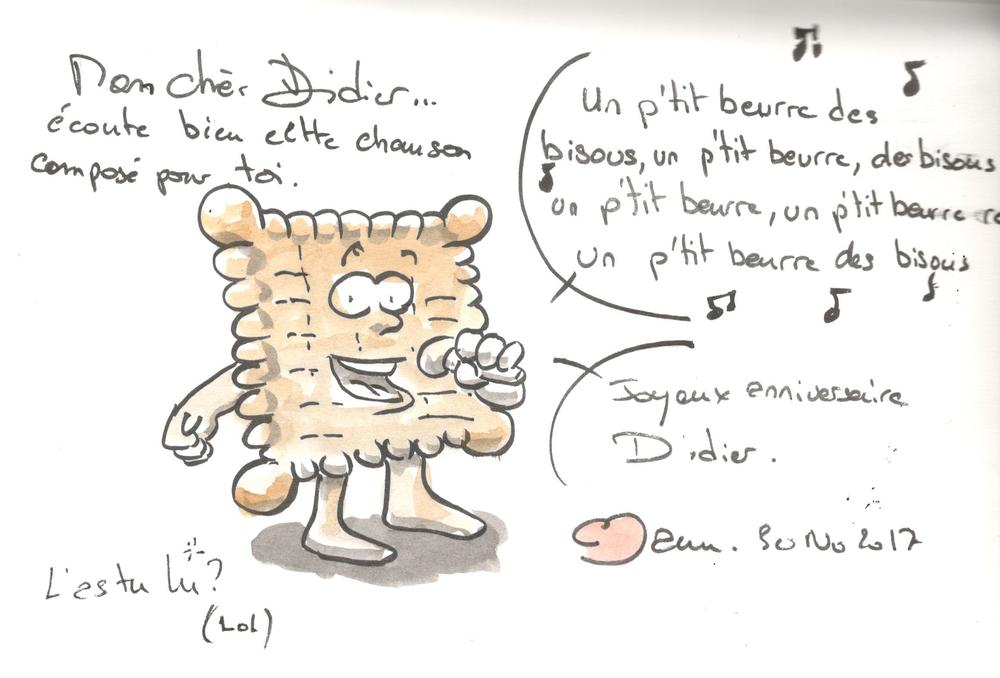 Mon chèr Didier...
écoute bien cette chanson
composé pour toi.
Un p'tit beurre des
bisous, un p'tit beurre, des bisous
un p'tit beurre, un p'tit beurre
un p'tit beurre des bisous
Joyeux anniversaire
Didier.
2017
L'es tu lu?
(Lol)